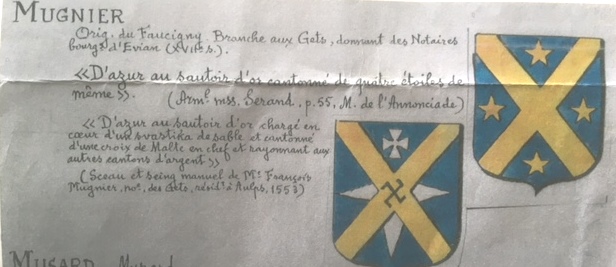 MUGNIER
Orig. du Faucigny. Branche aux Gets, donnant des Notaires
bourg. d'Evian (XVIIe s.).
«D'azur au sautoir d'or cantonné de quatre étoiles de
même». (Arml mss. Serand, p.55, M. de l'Annonciade)
«D'azur au sautoir d'or chargé en
cœur d'un svastika de sable et cantonné
d'une croix de Malte en chef et rayonnant aux
autres cantons d'argent»
(Sceau et seing manuel de Me François
Mugnier, nore, des Gets, résidt à Aulps, 1553)
MUSARD